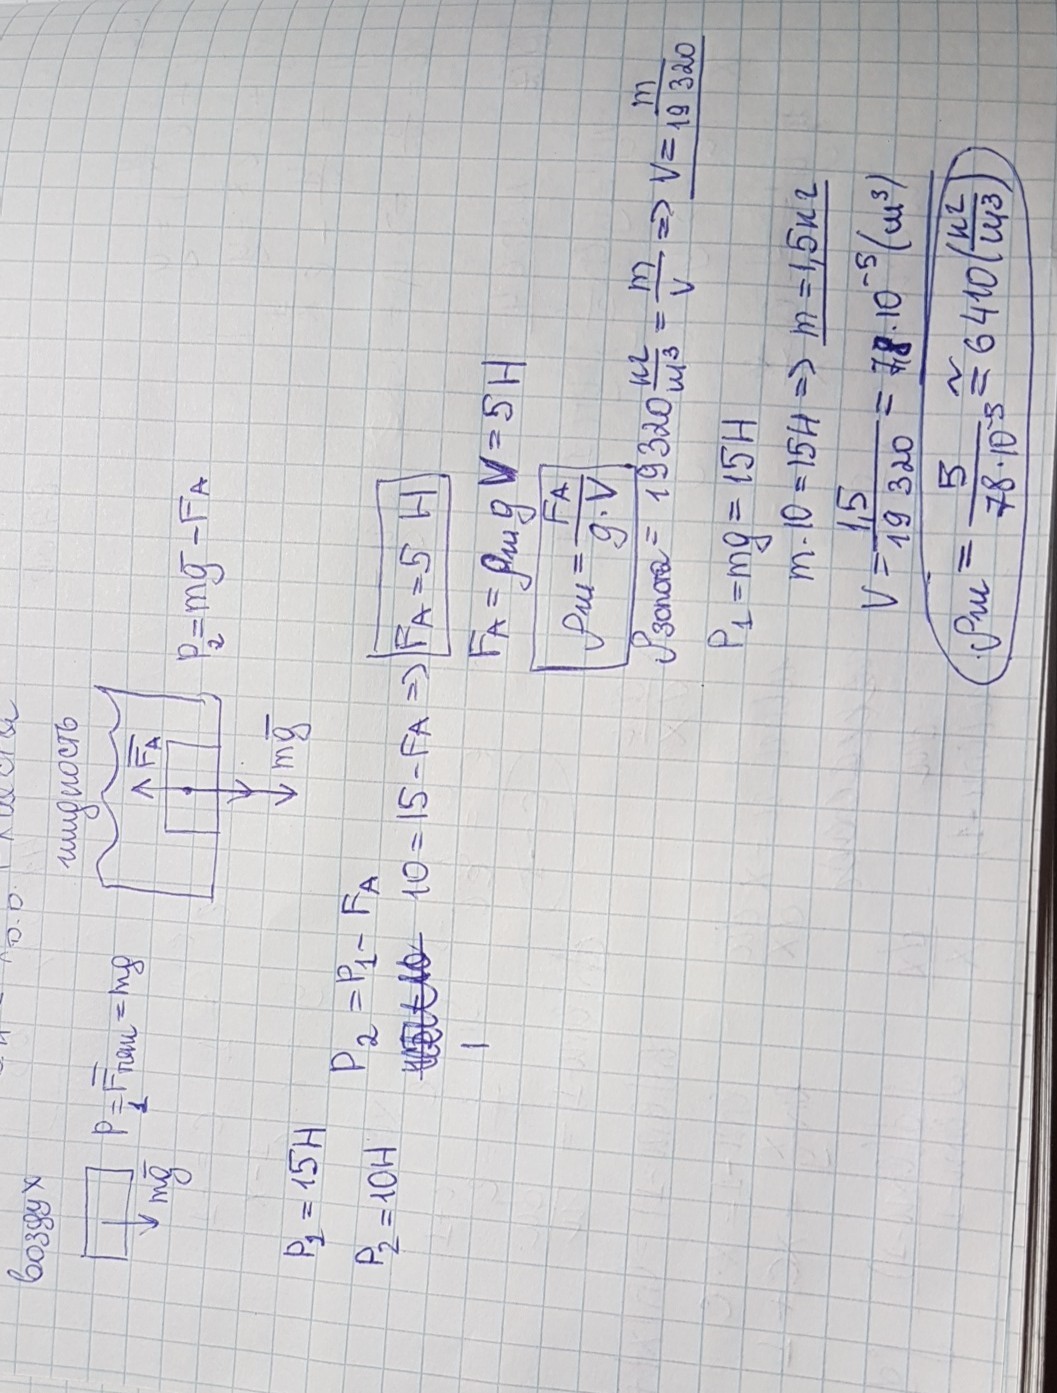 воздух
жидкость
mg̅
P₁=F̅тяж=mg
F̅A
mg̅
P₂=mg̅-FA
P₁=15Н
P₂=10Н
P₂=P₁-FA
10=15-FA=> FA=5 Н
FA=ρжgV=5Н
ρж=FA/g·V
ρзолота=19320 кг/м³=m/V=>V=m/19320
P₁=mg=15Н
m·10=15Н=>m=1,5кг
V=1,5/19320=78·10⁻⁵(м³)
ρж=5/78·10⁻⁵≈6410(кг/м³)